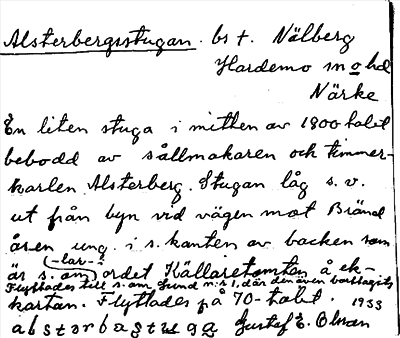 Alsterbergsstugan. bs t. Nälberg
Hardemo sn o hd
Närke
En liten stuga i mitten av 1800 talet
bebodd av sållmakaren och timmer-
karlen Alsterberg. Stugan låg s. v.
ut från byn vid vägen mot Bränd
åsen ung. i s. kanten av backen som
(-lar-?)
är s. om ordet Källaretomten å ek-
Flyttades till s. om Lund n:s 1, där den även borttagits
kartan. Flyttades på 70-talet. 1933
alstərbastuga Gustaf E. Olsson